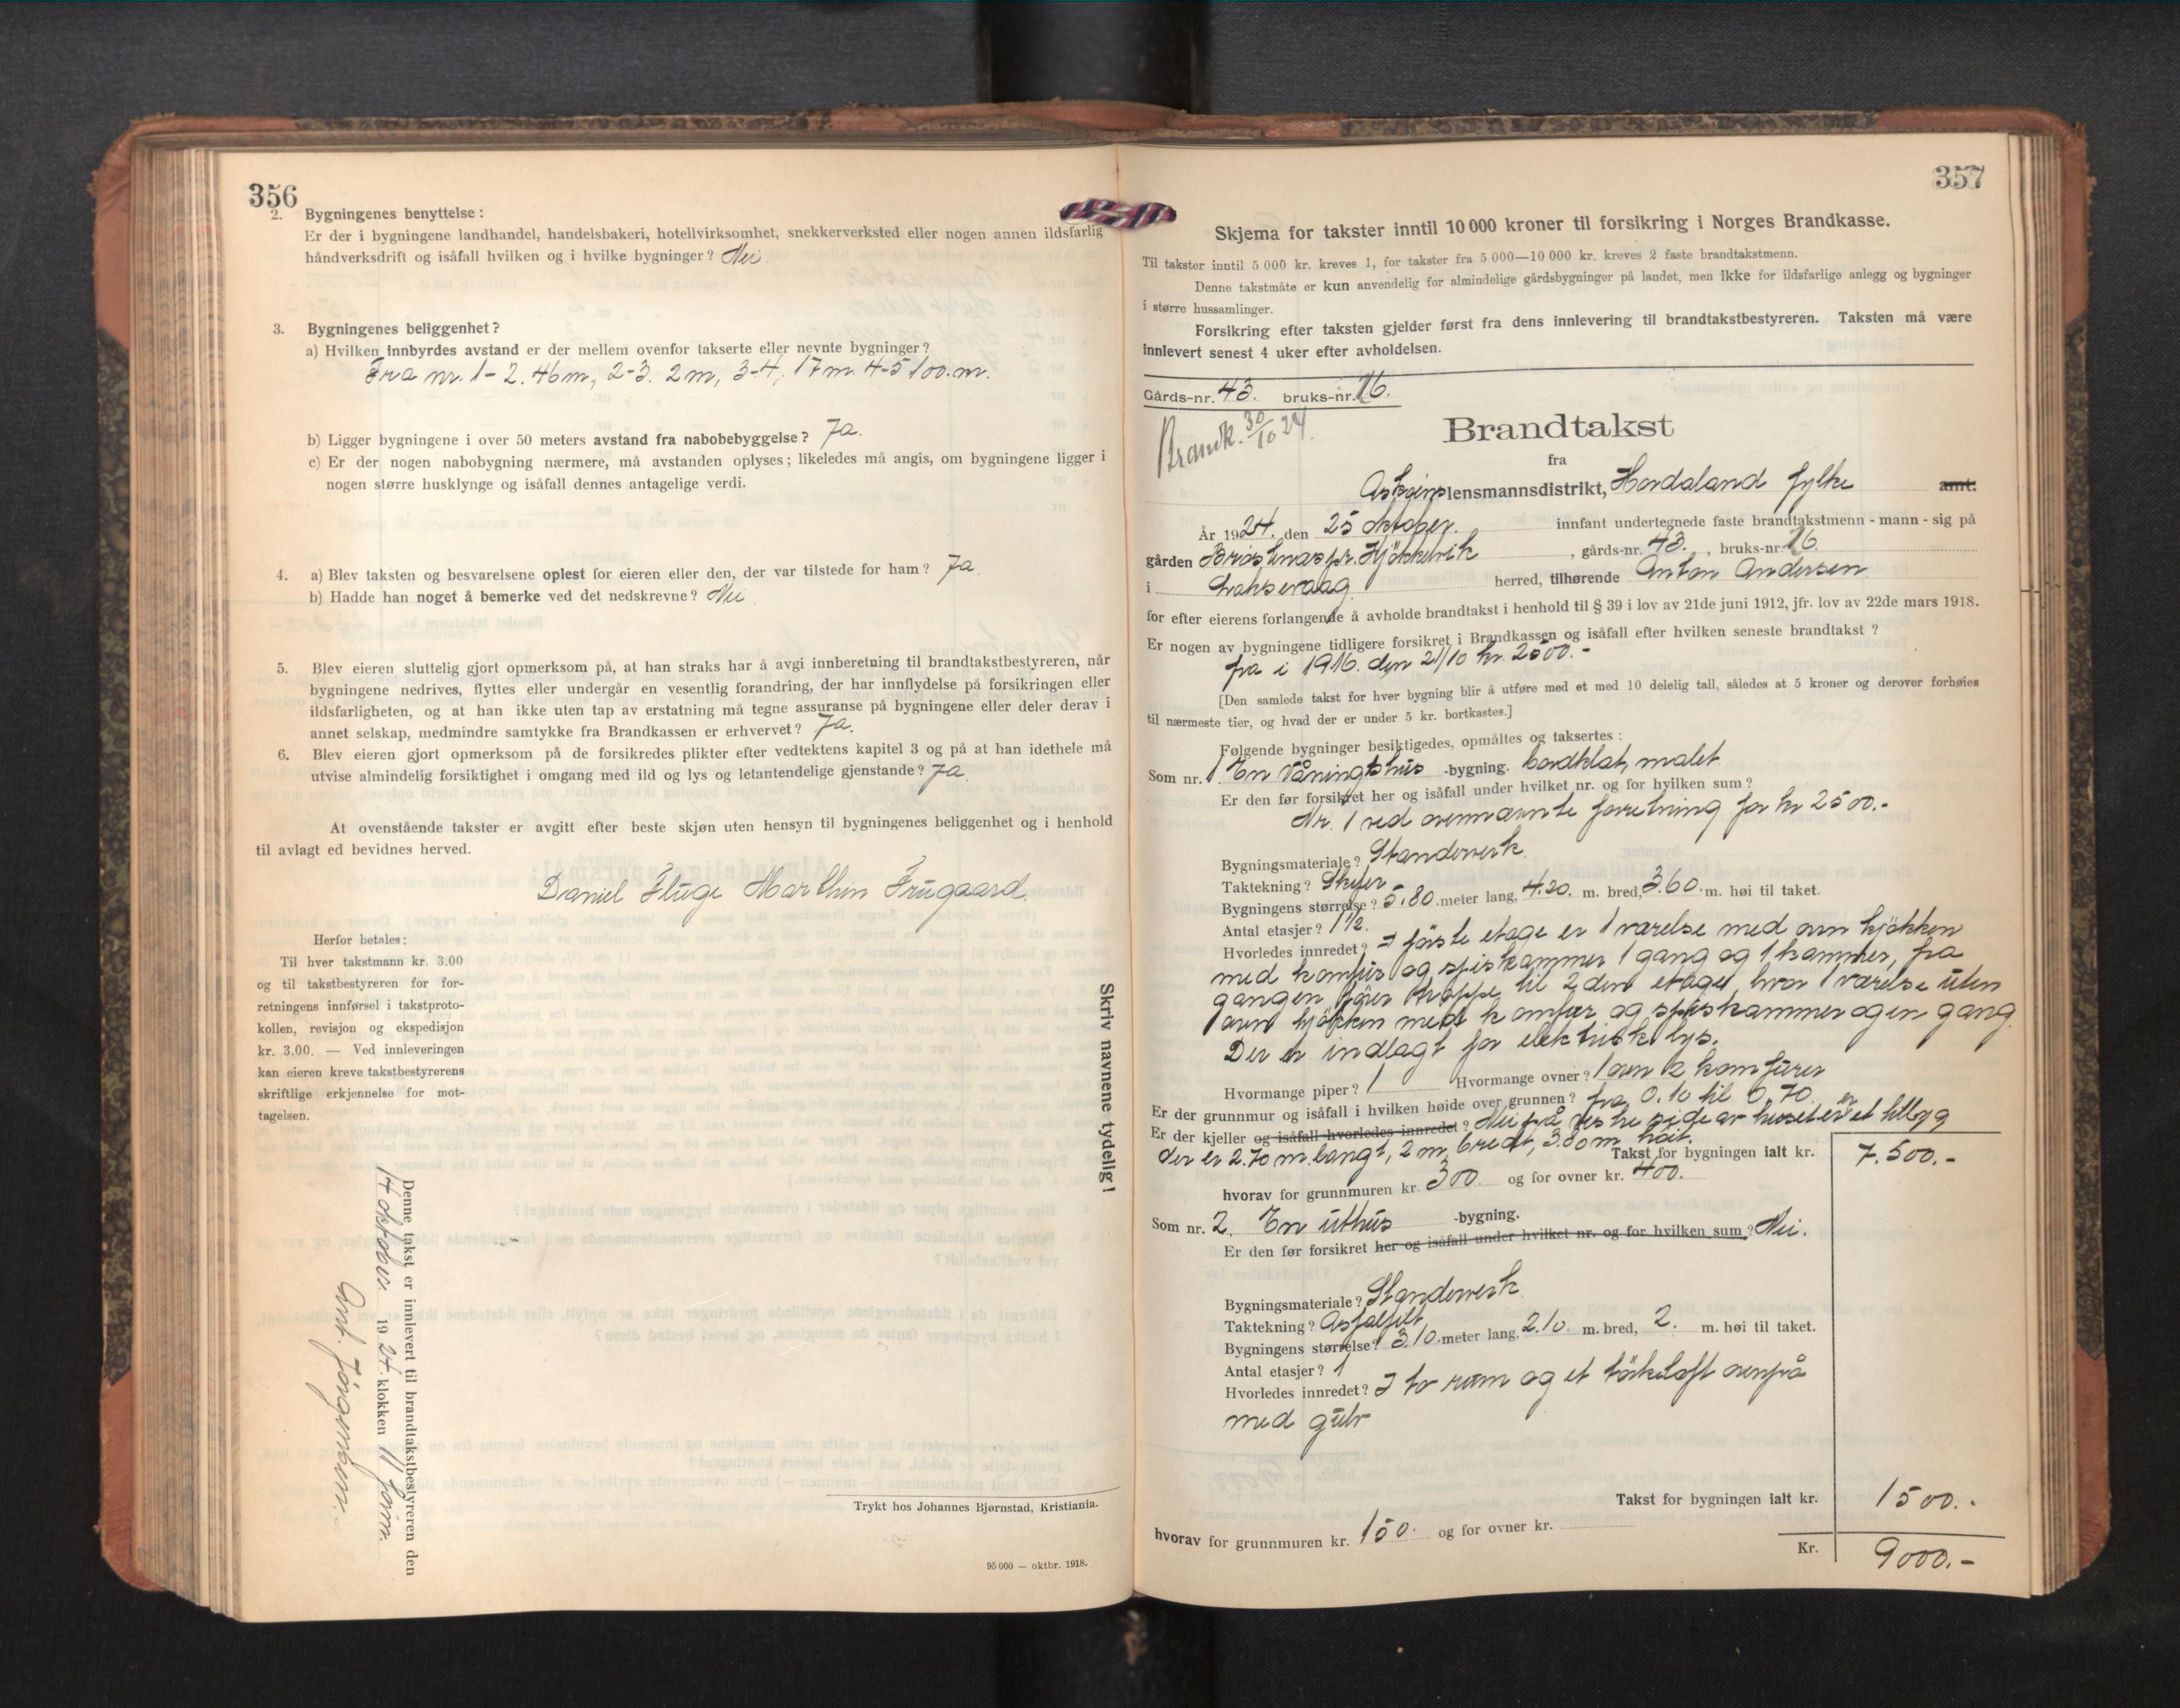 356
2. Bygningenes benyttelse:
Er der i bygningene landhandel, handelsbakeri, hotellvirksomhet, snekkerverksted eller nogen annen ildsfarlig
håndverksdrift og isåfall hvilken og i hvilke bygninger? Nei.
3. Bygningenes beliggenhet?
a) Hvilken innbyrdes avstand er der mellem ovenfor takserte eller nevnte bygninger?
Fra nr. 1-2. 46 m., 2-3. 2 m, 3-4, 17 m. 4-5 100. m.
b) Ligger bygningene i over 50 meters avstand fra nabobebyggelse? Ja.
c) Er der nogen nabobygning nærmere, må avstanden oplyses; likeledes må angis, om bygningene ligger i
nogen større husklynge og isåfall dennes antagelige verdi.
4. a) Blev taksten og besvarelsene oplest for eieren eller den, der var tilstede for ham? Ja.
b) Hadde han noget å bemerke ved det nedskrevne? Nei
5. Blev eieren sluttelig gjort opmerksom på, at han straks har å avgi innberetning til brandtakstbestyreren, når
bygningene nedrives, flyttes eller undergår en vesentlig forandring, der har innflydelse på forsikringen eller
ildsfarligheten, og at han ikke uten tap av erstatning må tegne assuranse på bygningene eller deler derav i
annet selskap, medmindre samtykke fra Brandkassen er erhvervet? Ja.
6. Blev eieren gjort opmerksom på de forsikredes plikter efter vedtektens kapitel 3 og på at han idethele må
utvise almindelig forsiktighet i omgang med ild og lys og letantendelige gjenstande? Ja.
At ovenstående takster er avgitt efter beste skjøn uten hensyn til bygningenes beliggenhet og i henhold
til avlagt ed bevidnes herved.
Daniel Fluge Marthin Frugaard.
Herfor betales:
Til hver takstmann kr. 3.00
og til takstbestyreren for for-
retningens innførsel i takstproto-
kollen, revisjon og ekspedisjon
kr. 3.00. — Ved innleveringen
kan eieren kreve takstbestyrerens
skriftlige erkjennelse for mot-
tagelsen.
Skriv navnene tydelig!
Denne takst er innlevert til brandtakstbestyreren den
14 oktober 1924 klokken 11 form.
Jörgensen
Trykt hos Johannes Bjørnstad, Kristiania.
95 000 — oktbr. 1918.
357
Skjema for takster inntil 10 000 kroner til forsikring i Norges Brandkasse.
Til takster inntil 5 000 kr. kreves 1, for takster fra 5 000—10 000 kr. kreves 2 faste brandtakstmenn.
Denne takstmåte er kun anvendelig for almindelige gårdsbygninger på landet, men ikke for ildsfarlige anlegg og bygninger
i større hussamlinger.
Forsikring efter taksten gjelder først fra dens innlevering til brandtakstbestyreren. Taksten må være
innlevert senest 4 uker efter avholdelsen.
Gårds-nr. 43. bruks-nr. 16.
Brandk. 30/10 24
Brandtakst
fra
Askøins lensmannsdistrikt, Hordaland fylke amt.
År 1924. den 25 oktober. innfant undertegnede faste brandtakstmenn - mann - sig på
gården Hjökkelvik, gårds-nr. 43., bruks-nr. 16.
i Laksevaag herred, tilhørende Anton Andersen
for efter eierens forlangende å avholde brandtakst i henhold til § 39 i lov av 21de juni 1912, jfr. lov av 22de mars 1918.
Er nogen av bygningene tidligere forsikret i Brandkassen og isåfall efter hvilken seneste brandtakst?
fra i 1916. den 21/10 kr. 2500.-
[Den samlede takst for hver bygning blir å utføre med et med 10 delelig tall, således at 5 kroner og derover forhøies
til nærmeste tier, og hvad der er under 5 kr. bortkastes.]
Følgende bygninger besiktigedes, opmåltes og taksertes:
Som nr. 1 En Våningshus -bygning. bordklæt, malet
Er den før forsikret her og isåfall under hvilket nr. og for hvilken sum?
Nr. 1 ved ovennævnte forretning for kr 2500.-
Bygningsmateriale? Standerverk.
Taktekning? Skifer
Bygningens størrelse? 5.80. meter lang, 4.20. m. bred, 3.60. m. høi til taket.
Antal etasjer? 1½.
Hvorledes innredet? I förste etage er 1 værelse med ovn kjökken
med komfür og spiskammer 1 gang og 1 kammer, fra
gangen förer trappe til 2den etage, hvor 1 værelse uten
ovn kjökken med komfür og spiskammer og en gang.
Der er indlagt for elektrisk lys.
Hvormange piper? 1 Hvormange ovner? 1 ovn 2 komfürer
Er der grunnmur og isåfall i hvilken høide over grunnen? fra 0.10 til 0.70.
Er der kjeller og isåfall hvorledes innredet? Nei på vestre side av huset er et tilbyg
der er 2.70 m. langt, 2 m. bredt, 3.80 m. höit.
Takst for bygningen ialt kr. 7.500.-
hvorav for grunnmuren kr. 300 og for ovner kr. 400.
Som nr. 2. En uthus -bygning.
Er den før forsikret her og isåfall under hvilket nr. og for hvilken sum? Nei.
Bygningsmateriale? Standerverk
Taktekning? Asfalfilt
Bygningens størrelse? 3.10. meter lang, 2.10. m. bred, 2. m. høi til taket.
Antal etasjer? 1
Hvorledes innredet? I to rum og et törkeloft ovenpå
med gulv
Takst for bygningen ialt kr. 1500.-
hvorav for grunnmuren kr. 150. og for ovner kr.
Kr. 9000.-